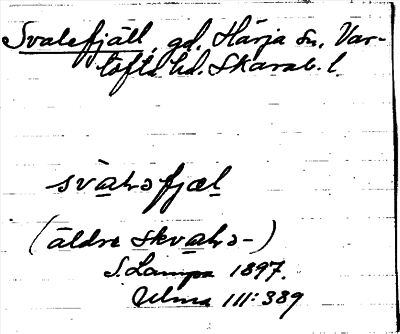 Svalefjäll, gd. Härja sn. Var-
tofta hd. Skarab. l.
svahəfjæl
(äldre skvahə-)
S. Lampa 1897.
Ulma 111:389